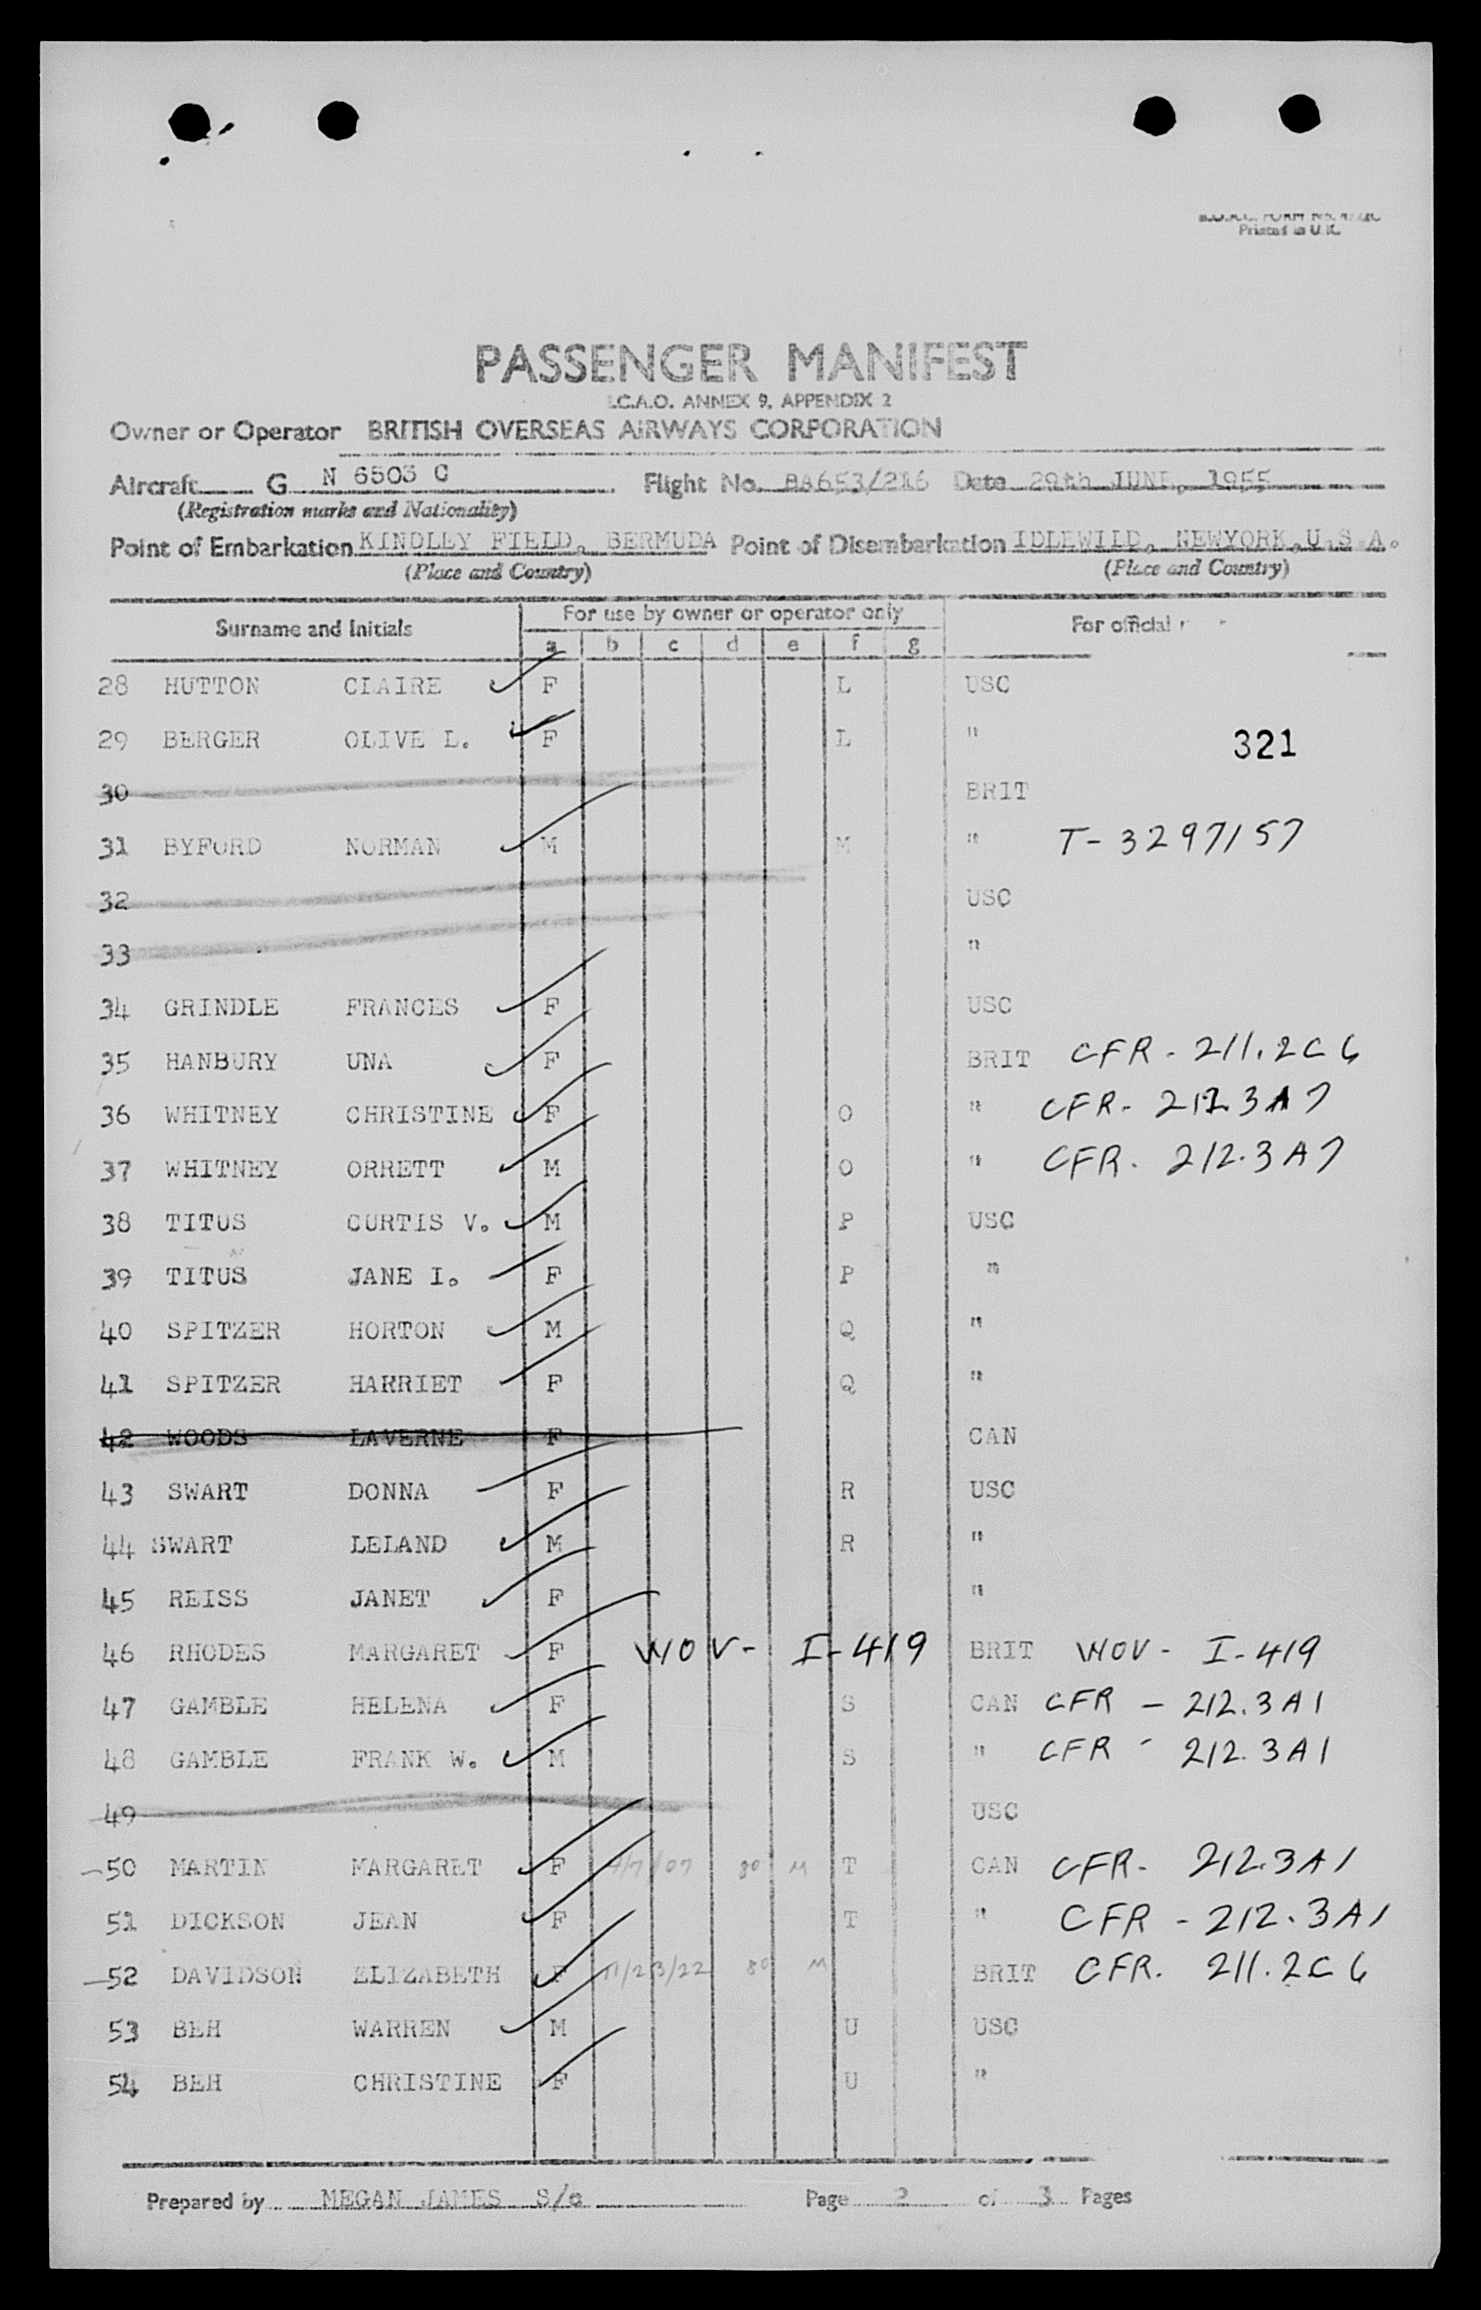 Printed in U.K.
PASSENGER MANIFEST
I.C.A.O. ANNEX 9, APPENDIX 2
Owner or Operator BRITISH OVERSEAS AIRWAYS CORPORATION
Aircraft G N 6503 C Flight No. BA653/216 Date 29th JUNE, 1955
(Registration marks and Nationality)
Point of Embarkation KINDLEY FIELD, BERMUDA Point of Disembarkation IDLEWILD, NEWYORK, U.S.A.
(Place and Country) (Place and Country)
Surname and Initials For use by owner or operator only For official
a b c d e f g
28 HUTTON CLAIRE F L USC
29 BERGER OLIVE L. F L " 321
30 BRIT
31 BYFORD NORMAN M M " T-3297157
32 USC
33 "
34 GRINDLE FRANCES F USC
35 HANBURY UNA F BRIT CFR - 211.2C6
36 WHITNEY CHRISTINE F O " CFR - 212.3A7
37 WHITNEY ORRETT M O " CFR. 212.3A7
38 TITUS CURTIS V. M P USC
39 TITUS JANE I. F P "
40 SPITZER HORTON M Q "
41 SPITZER HARRIET F Q "
42 WOODS LAVERNE F CAN
43 SWART DONNA F R USC
44 SWART LELAND M R "
45 REISS JANET F "
46 RHODES MARGARET F WOV- I-419 BRIT WOV- I-419
47 GAMBLE HELENA F S CAN CFR - 212.3A1
48 GAMBLE FRANK W. M S " CFR - 212.3A1
49 USC
50 MARTIN MARGARET F 80 M T CAN CFR- 212.3A1
51 DICKSON JEAN F T " CFR - 212.3A1
52 DAVIDSON ELIZABETH F 11/23/22 80 M BRIT CFR. 211.2C6
53 BEH WARREN M U USC
54 BEH CHRISTINE F U "
Prepared by MEGAN JAMES S/e Page 2 of 3 Pages